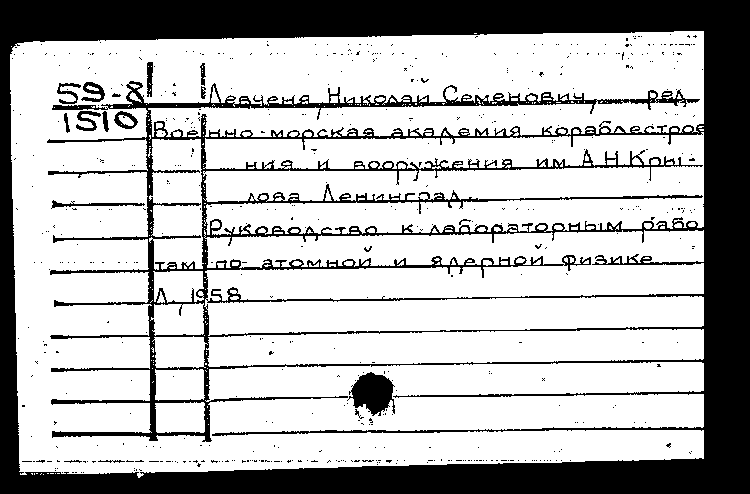 59-8
1510
Левченя, Николай Семенович, ред.
Военно-морская академия кораблестрое
ния и вооружения им А.Н.Кры-
лова Ленинград.
Руководство к лабораторным рабо
там по атомной и ядерной физике
Л., 1958